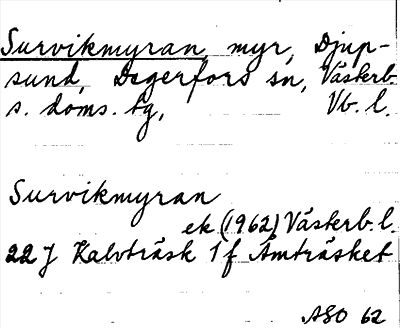 Survikmyran, myr, Djup-
sund, Degerfors sn, Västerb.
s. doms. bg, Vb. l.
Survikmyran
ek (1962) Västerb. l.
22 J Kalvträsk 1 f Åmträsket
ASO 62